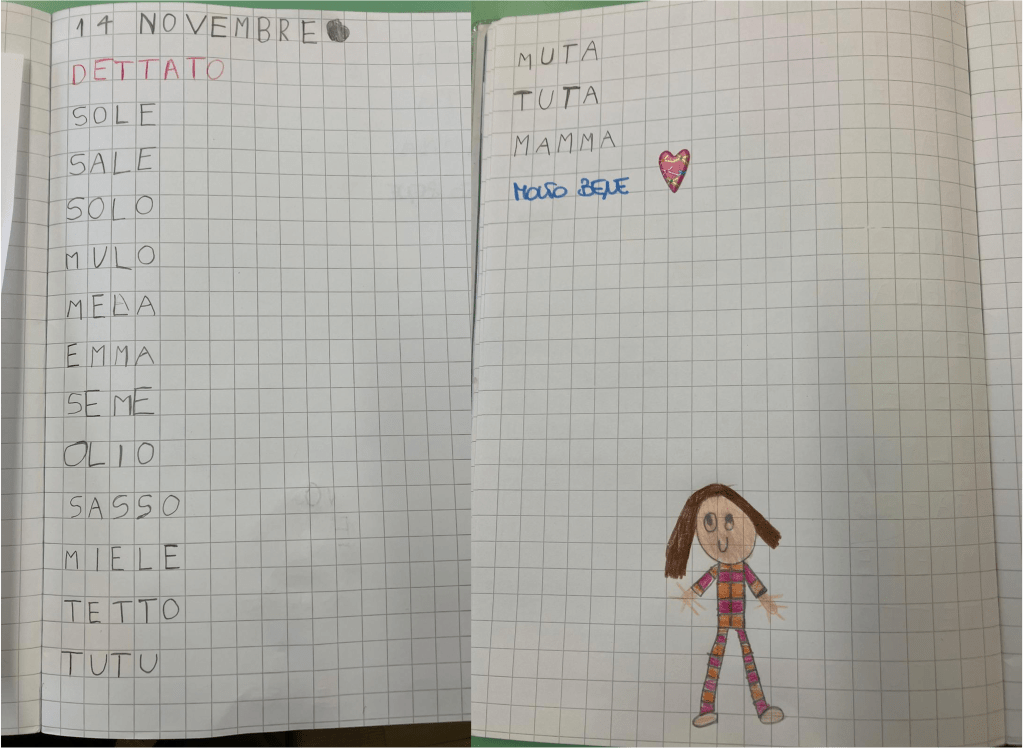 14 NOVEMBRE
DETTATO
SOLE
SALE
SOLO
MULO
MELA
EMMA
SEME
OLIO
SASSO
MIELE
TETTO
TUTU
MUTA
TUTA
MAMMA
MOLTO BENE